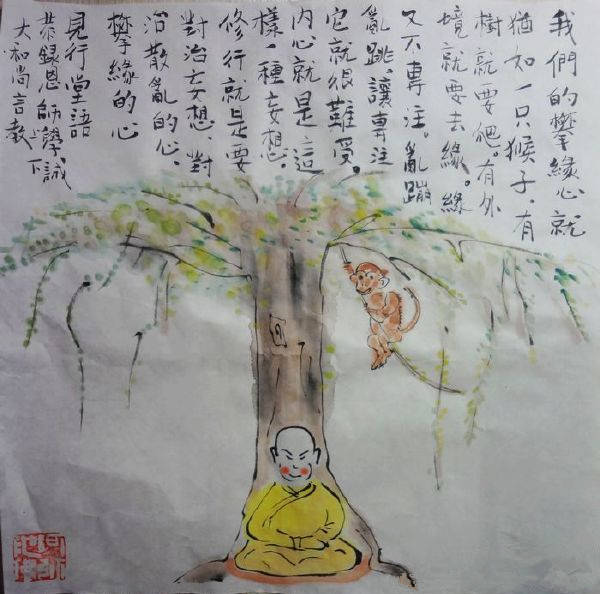 我們的攀緣心就
猶如一只猴子，有
樹就要爬。有外
境就要去緣。緣
又不專注。亂蹦
亂跳。讓專注
它就很難受。
内心就是這
樣一種妄想。
修行就是要
對治妄想 對
治散亂的心.
攀緣的心
見行堂語
恭録恩師上學下誠
大和尚言教